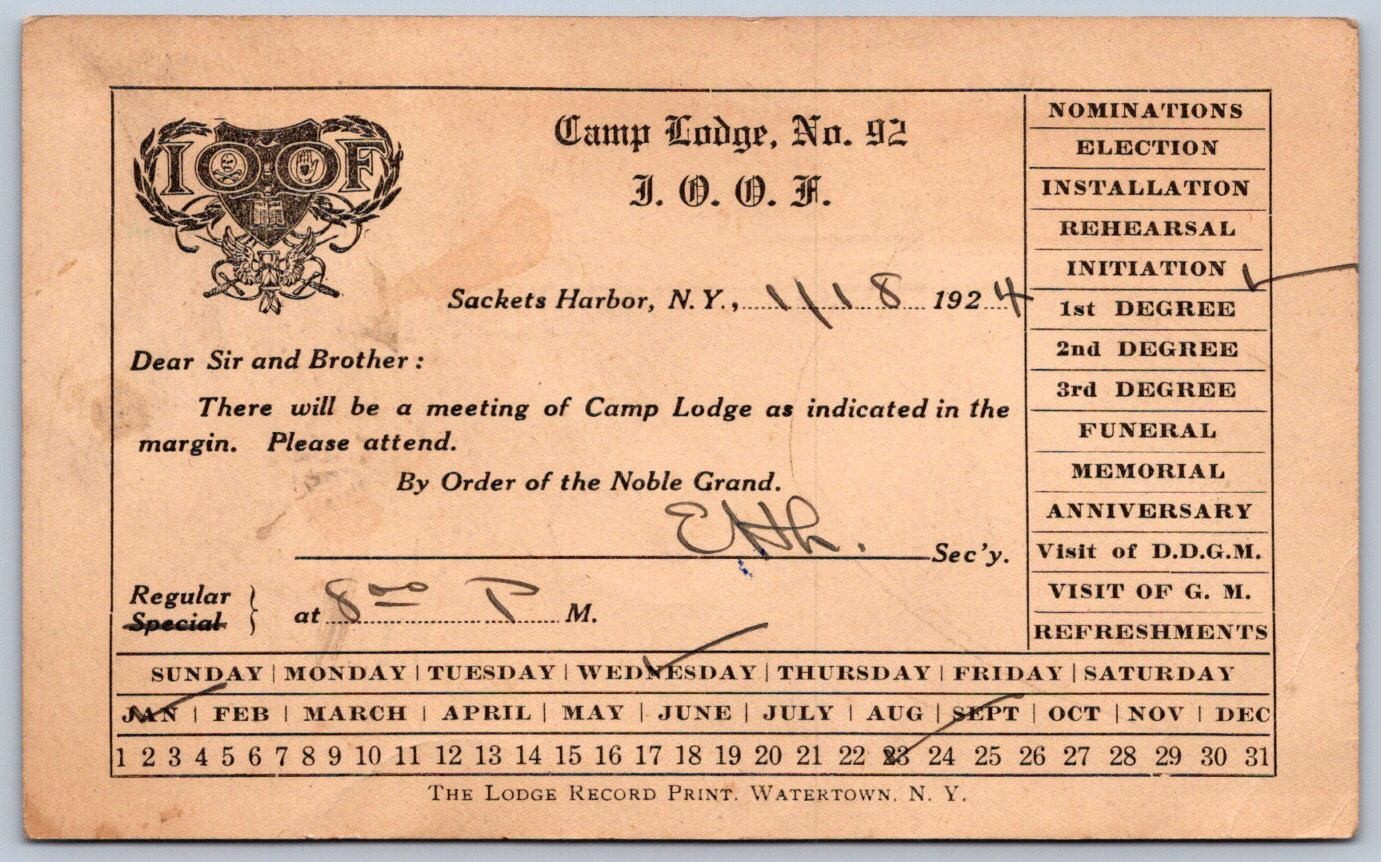 IOOF
Camp Lodge, No. 92
I. O. O. F.
Sackets Harbor, N. Y., 1/18 1924
Dear Sir and Brother :
There will be a meeting of Camp Lodge as indicated in the
margin. Please attend.
By Order of the Noble Grand.
Sec'y.
Regular
Special } at 8 00 P M.
NOMINATIONS
ELECTION
INSTALLATION
REHEARSAL
INITIATION
1st DEGREE
2nd DEGREE
3rd DEGREE
FUNERAL
MEMORIAL
ANNIVERSARY
Visit of D.D.G.M.
VISIT OF G. M.
REFRESHMENTS
SUNDAY | MONDAY | TUESDAY | WEDNESDAY | THURSDAY | FRIDAY | SATURDAY
JAN | FEB | MARCH | APRIL | MAY | JUNE | JULY | AUG | SEPT | OCT | NOV | DEC
1 2 3 4 5 6 7 8 9 10 11 12 13 14 15 16 17 18 19 20 21 22 23 24 25 26 27 28 29 30 31
THE LODGE RECORD PRINT. WATERTOWN. N. Y.